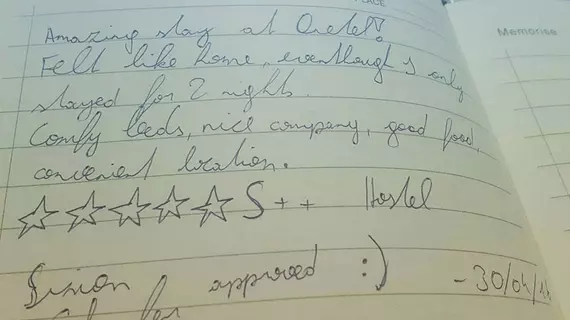 PLACE
Memorise
Amazing stay at
Felt like home, eventhough I only
stayed for 2 nights.
Comfy beds, nice company, good food,
convenient location.
☆☆☆☆☆ S++ Hostel
approved :) - 30/04/